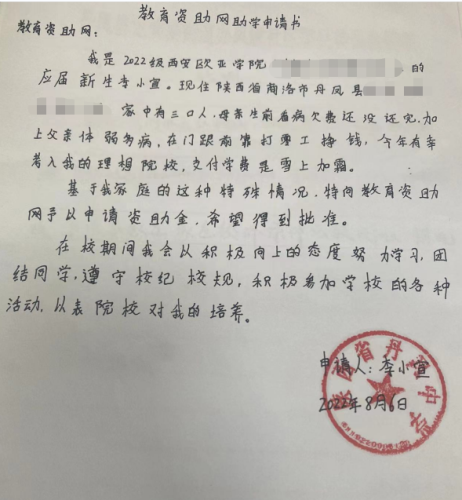 教育资助网助学申请书
教育资助网:
我是2022级西安欧亚学院 的
应届新生李小宣。现住陕西省商洛市丹凤县
家中有三口人,母亲生前看病欠费还没还完,加
上父亲体弱多病,在门跟前靠打零工挣钱,今年有幸
考入我的理想院校,交付学费是雪上加霜。
基于我家庭的这种特殊情况,特向教育资助
网予以申请资助金,希望得到批准。
在校期间我会以积极向上的态度努力学习,团
结同学,遵守校纪校规,积极参加学校的各种
活动,以表院校对我的培养。
申请人:李小宣
2022年8月6日
陕西省丹 中学